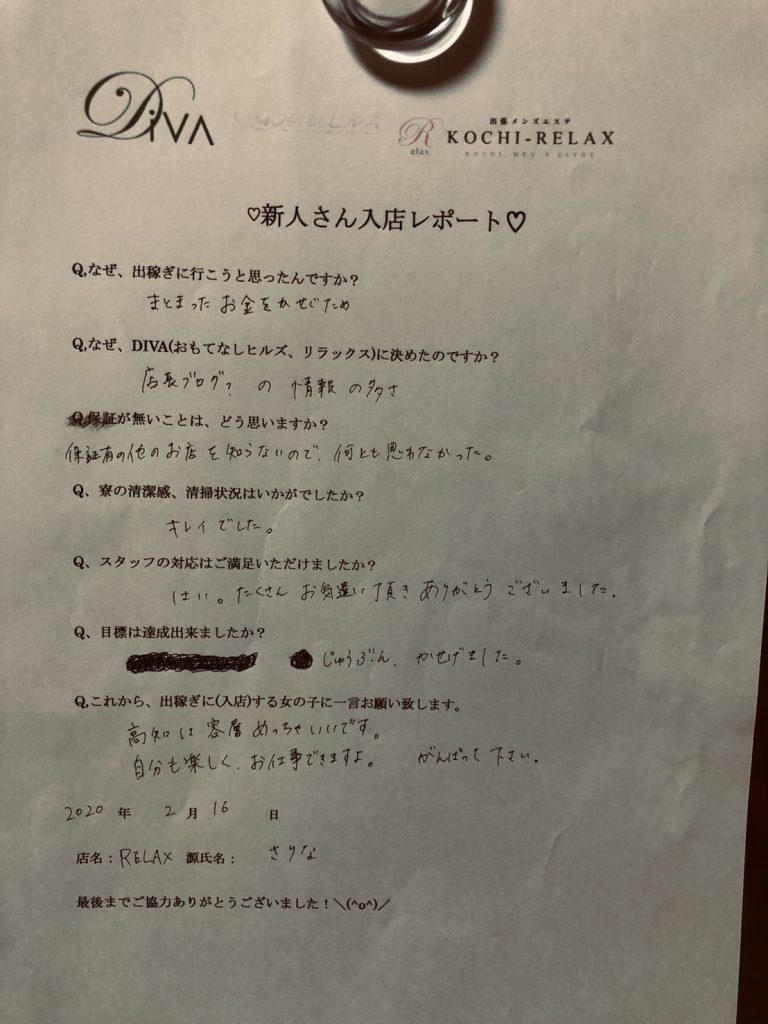 DIVA
出張メンズエステ
R
elax
KOCHI-RELAX
KOCHI MEN'S ESTHE
♡新人さん入店レポート♡
Q,なぜ、出稼ぎに行こうと思ったんですか？
まとまったお金をかせぐため
Q,なぜ、DIVA(おもてなしヒルズ、リラックス)に決めたのですか？
店長ブログ？の情報の多さ
Q,保証が無いことは、どう思いますか？
保証有の他のお店を知らないので、何とも思わなかった。
Q、寮の清潔感、清掃状況はいかがでしたか？
キレイでした。
Q、スタッフの対応はご満足いただけましたか？
はい。たくさんお気遣い頂きありがとうございました。
Q、目標は達成出来ましたか？
じゅうぶん、かせげました。
Q,これから、出稼ぎに(入店)する女の子に一言お願い致します。
高知は客層めっちゃいいです。
自分も楽しく、お仕事できますよ。 がんばって下さい。
2020 年 2 月 16 日
店名：RELAX 源氏名： さりな
最後までご協力ありがとうございました！＼(^o^)／